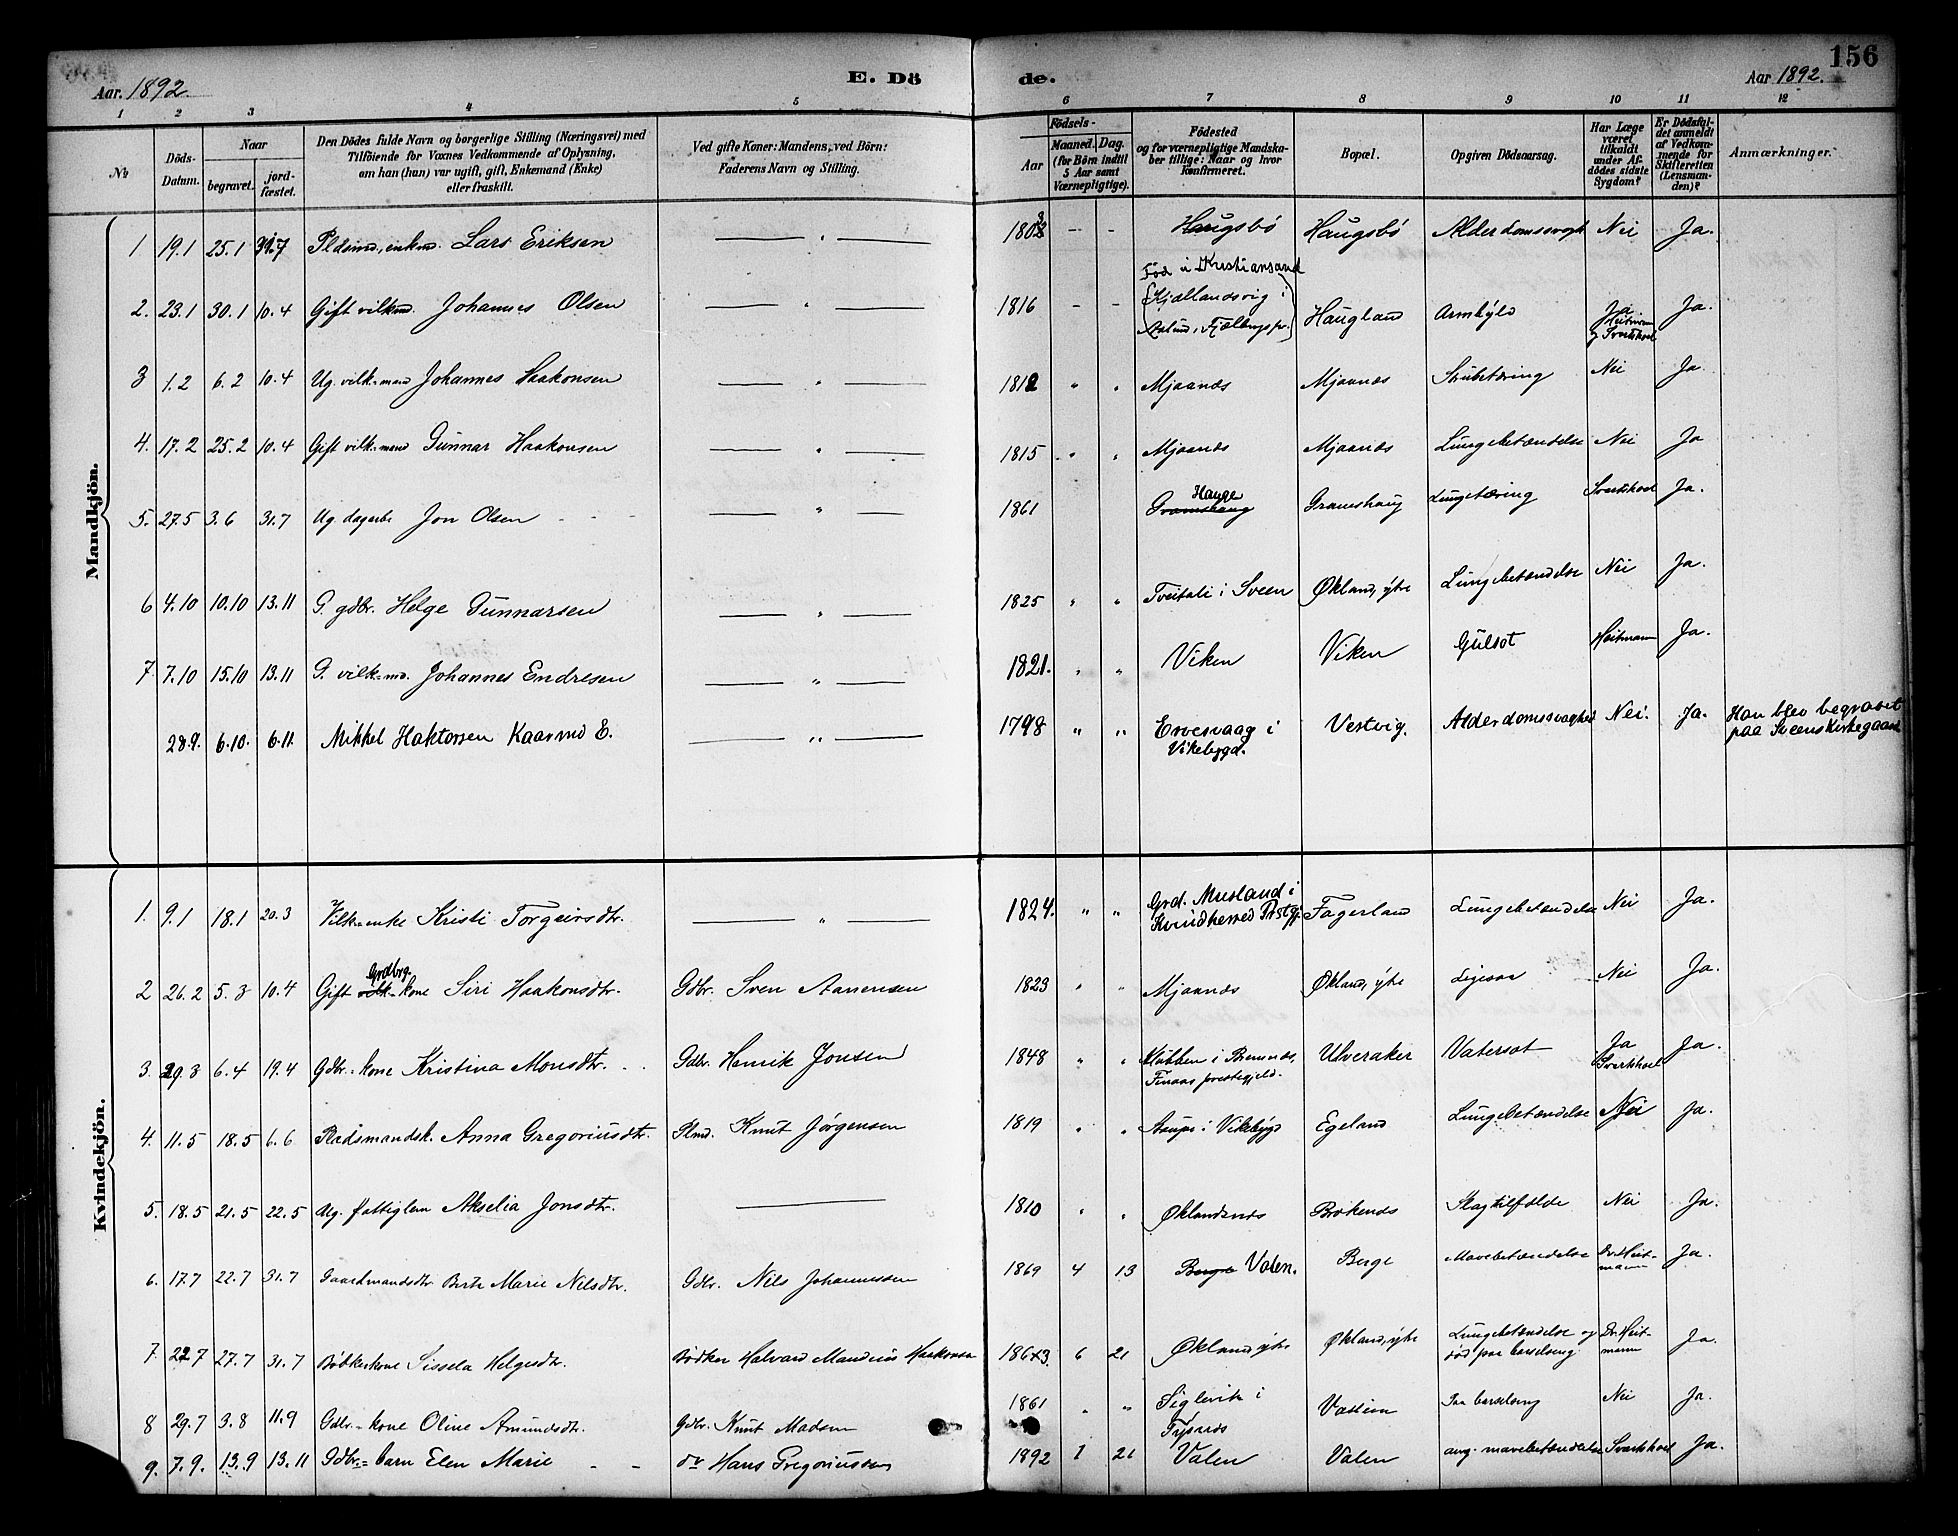 156
Aar. 1892.
E. Dö
de.
Aar 1892.
1 2 3 4 5 6 7 8 9 10 11 12
No
Döds-Datum.
Naar
begravet.
jord-fæstet.
Den Dödes fulde Navn og borgerlige Stilling (Næringsvei) med
Tilföiende for Voxnes Vedkommende af Oplysning,
om han (hun) var ugift, gift, Enkemand (Enke)
eller fraskilt.
Ved gifte Koner: Mandens, ved Börn:
Faderens Navn og Stilling.
Födsels-
Aar
Maaned. Dag.
(for Börn indtil
5 Aar samt
Værnepligtige).
Födested
og for værnepligtige Mandska-
ber tillige: Naar og hvor
konfirmeret.
Bopæl.
Opgiven Dödsaarsag.
Har Læge
været
tilkaldt
under Af-
dödes sidste
Sygdom?
Er Dödsfal-
det anmeldt
af Vedkom-
mende for
Skifteretten
(Lensman-
den)?
Anmærkninger.
Mandkjön.
1 19.1 25.1 31.7 Pldsmd, enkmd. Lars Eriksen — " — 1803 - - Haugsbö Haugsbö Alderdomssvagh Nei Ja.
2. 23.1 30.1 10.4 Gift vilkmd. Johannes Olsen — " — 1816 - - Föd i Kristiansand
(Kjællandsvig i
Fjælbergs pr.) Haugland Ja. Heitmann
og Svartskoel Ja.
3 1.2 6.2 10.4 Ug. vilk-mand Johannes Haakonsen — " — 1812 " " Mjaanes Mjaanes Nei Ja
4. 17.2 25.2 10.4 Gift vilk-mand Gunnar Haakonsen — " — 1815 " " Mjaanes Mjaanes Lungebetændelse Nei Ja
5. 27.5 3.6 31.7 Ug dagarb. Jon Olsen — " — 1861 Gramshaug Hauge Gramshaug Lungetæring Svartskoel Ja.
6 4.10 10.10 13.11 G. gdbr. Helge Gunnarsen — " — 1825 " " Tveitali i Sveen Økland, ytre Lungebetændelse Nei Ja.
7 7.10 15.10 13.11 G. vilk-md. Johannes Endresen — " — 1821. " " Viken Viken Gulsot Heitmann Ja.
28.9. 6.10. 6.11. Mikkel Haktorsen Kaarmd E. — " — 1798 " " Ervesvaag i
Vikebygd. Vestvig. Alderdomssvaghed Nei. Ja. Han blev begravet
paa Sveens Kirkegaard
Kvindekjön.
1. 9.1 18.1 20.3 Vilk-enke Kristi Torgeirsdtr. — " — 1824. " " Grd. Musland i
Kvindherred Prstgj. Fagerland Lungebetændelse Nei Ja.
2 26.2 5.3 10.4 Gift vilk- Grdbrg. kone Siri Haakonsdtr. Gdbr. Sven Aanensen 1823 " " Mjaanes Økland, ytre Nei Ja.
3. 29.3 6.4 19.4 Gdbr.-kone Kristina Monsdtr. Gdbr. Henrik Jonsen 1848 " " i Bremnes,
Finaas prestegjeld. Ulveraker Vatersot Ja
Svartskoel Ja.
4. 11.5 18.5 6.6 Pladsmandsk. Anna Gregoriusdtr. Plmd. Knut Jørgensen 1819 " " Staupe i Vikebygd Egeland Lungebetændelse Nei Ja.
5. 18.5 21.5 22.5 Ug. fattiglem Akselia Jonsdtr. — 1810 " " Øklandsnes Brekenes Slagtilfælde Nei Ja.
6. 17.7 22.7 31.7 Gaardmandsdtr Berte Marie Nilsdtr. Gdbr. Nils Johannessen 1869 4 13 Berge Valen. Berge Mavebetændelse Dr. Heit-
mann Ja.
7. 22.7 27.7 31.7 Bödkerkone Sissela Helgesdtr. Bödker Halvard Mandius Haakonsen 1863 6 21 Økland, ytre Økland, ytre Lungebetændelse og
död paa barselseng Dr. Heit-
mann Ja.
8 29.7 3.8 11.9 Gdbr.-kone Oline Amundsdtr. Gdbr. Knut Madsen 1861 " " Siglevik i
Tysnes Paa barselseng Nei Ja.
9. 7.9. 13.9 13.11 Gdbr.-barn Elen Marie - - Hans Gregoriussen 1892 1 21 Valen Valen ang. mavebetændelse Svartskoel Ja.